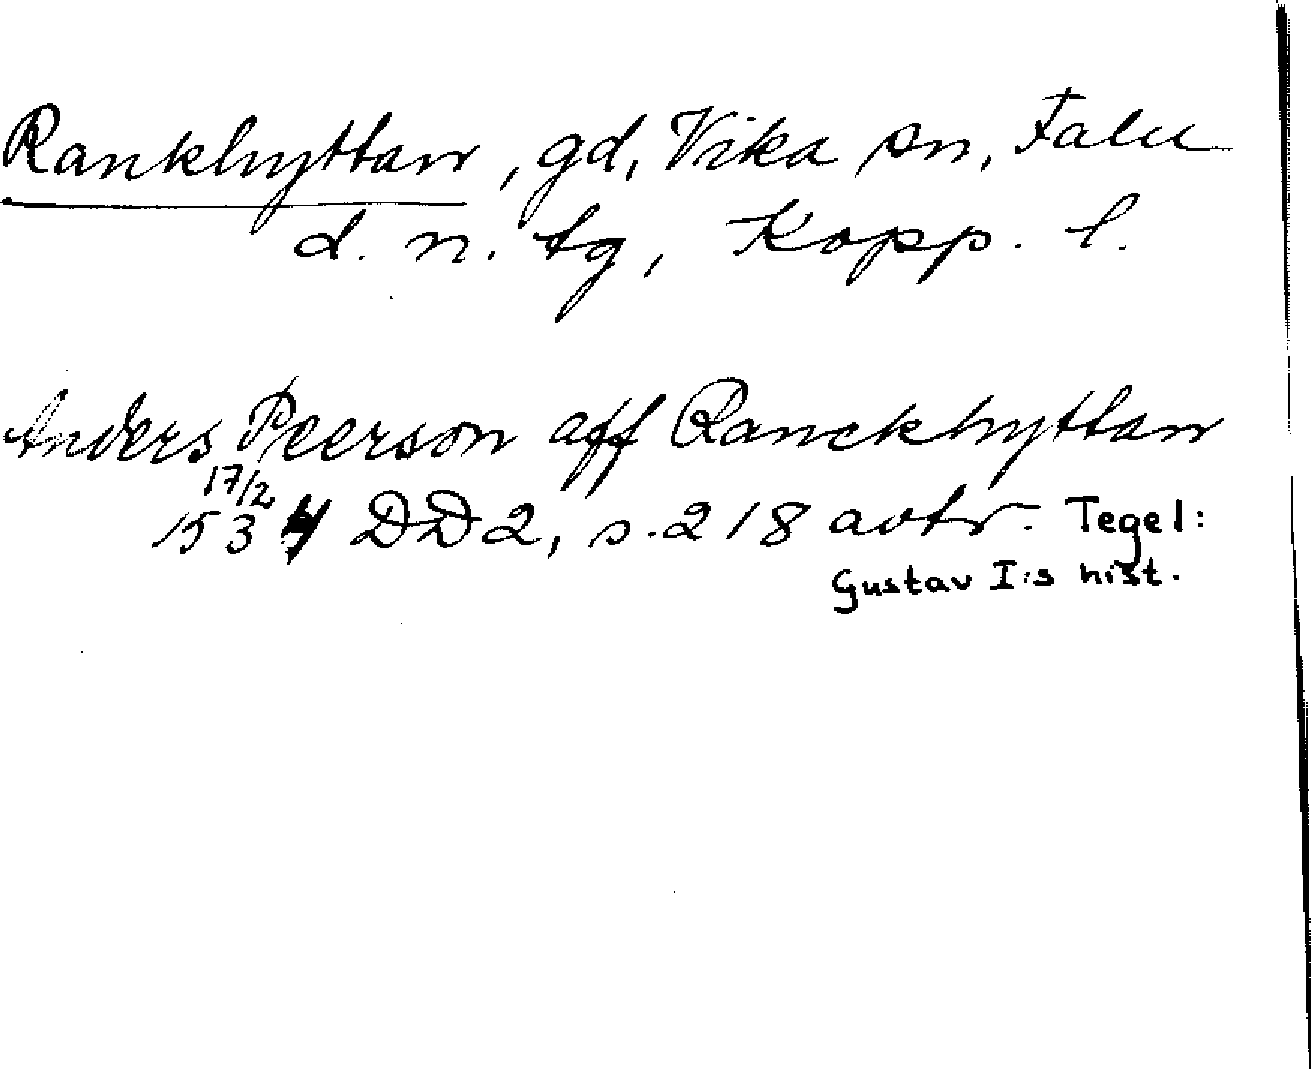 Rankhyttan, gd, Vika sn, Falu
d. n. tg, Kopp. l.
Anders Peerson aff Ranckhyttan
17/2
1534 DD2, s. 218 avtr. Tegel:
Gustav I:s hist.